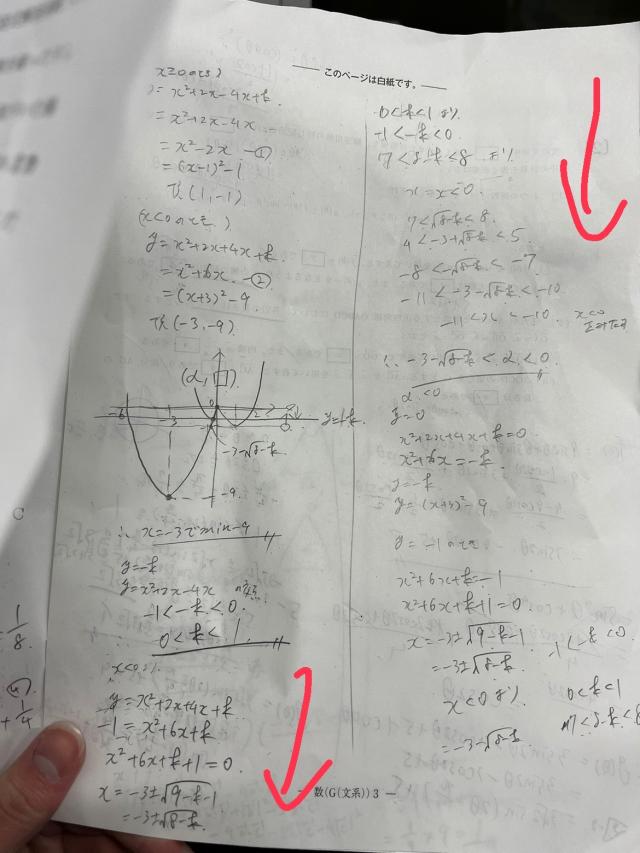 このページは白紙です。
= x²+2x-4x+k.
= x²+2x-4x
= x²-2x -①
= (x-1)²-1
頂(1,-1)
(x<0のとき)
y= x²+2x+4x+k.
= x²+6x. -②
= (x+3)²-9.
頂(-3,-9).
-6
-3
0
2
-3-√8-k.
-9
∴ x=-3でmin-9
y=-k
y=x²+2x-4x
-1<-k<0.
0<k<1.
y= x²+2x+4x+k
-1= x²+6x+k
x²+6x+k+1=0.
x= -3±√9-k-1
= -3±√8-k.
0<k<1より
-1<-k<0.
7<8-k<8 より
7<√8-k<8.
4<-3+√8-k<5.
-8<-√8-k<-7
-11<-3-√8-k<-10
∴ -3-√8-k<α<0.
α<0
y=0
x²+2x+4x+k=0.
x²+6x=-k.
y=-k
y=(x+3)²-9
y=-1のとき
x²+6x+k=-1
x²+6x+k+1=0.
x=-3±√9-k-1
-1<-k<0
=-3±√8-k.
x<0より
0<k<1
7<8-k<8
=-3-√8-k
1/8.
+1/4
数(G(文系))3